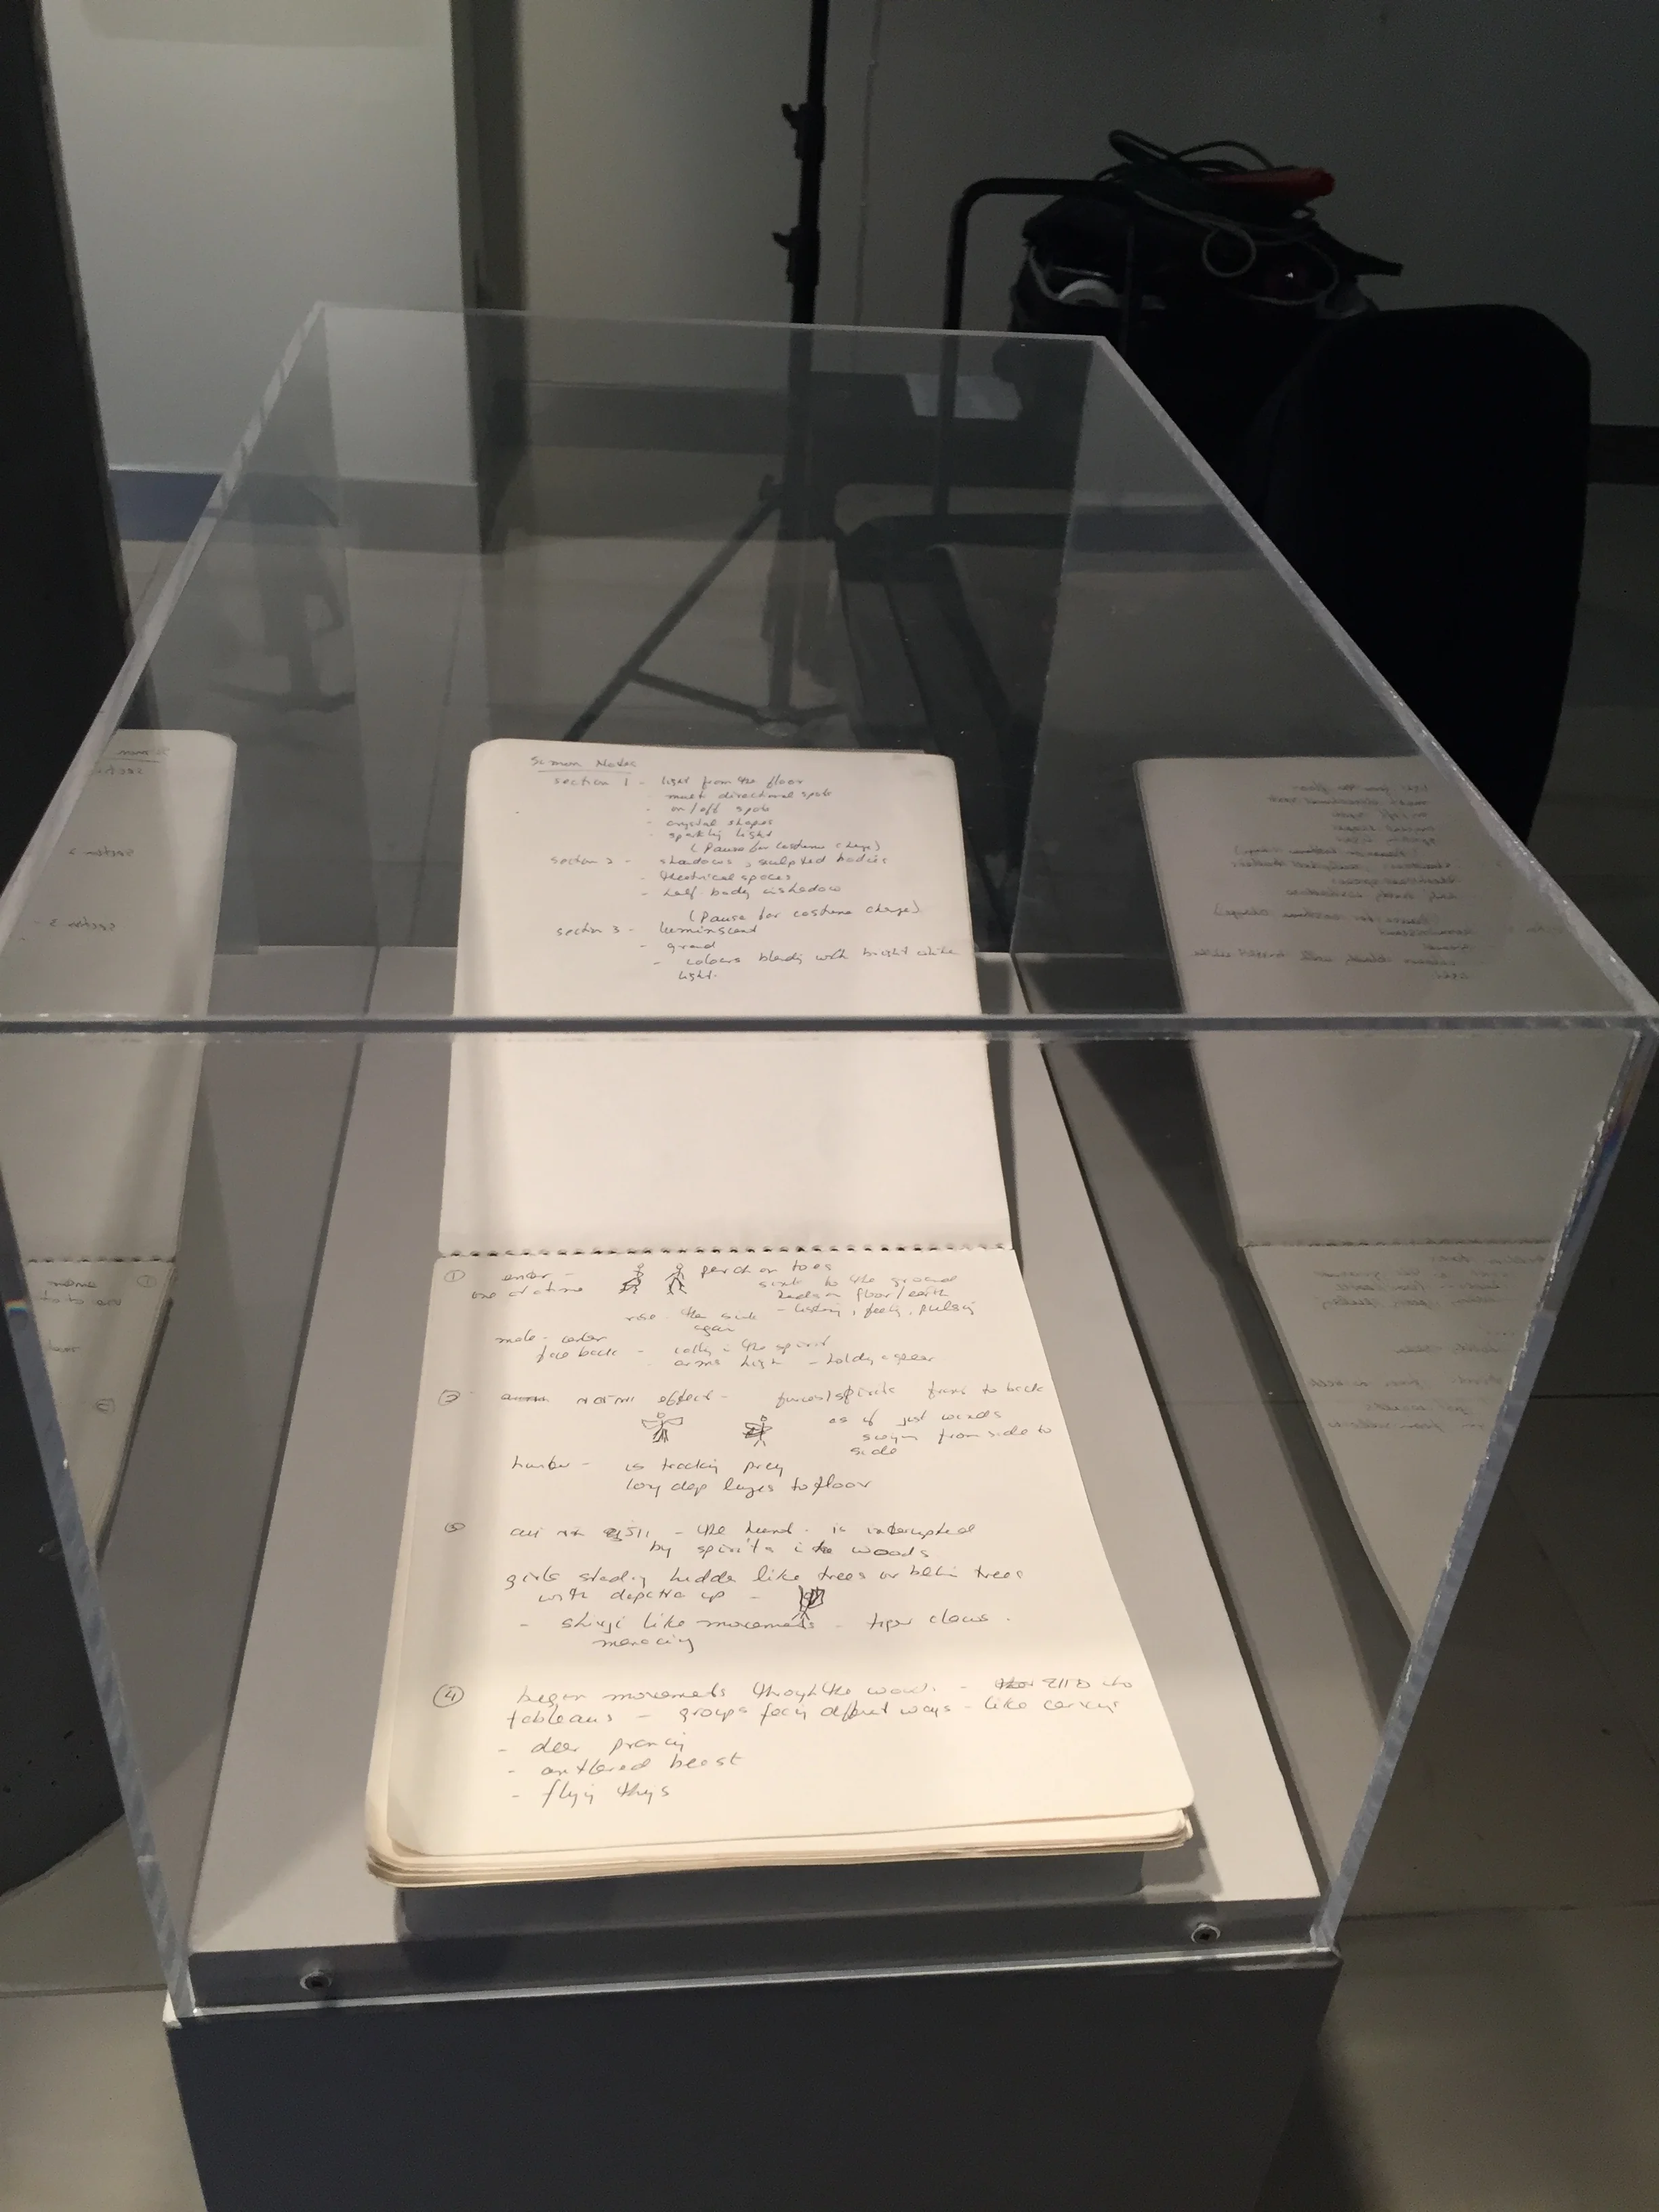 Simon Notes
section 1 - light from the floor
- multi directional spots
- on/off spots
- crystal shapes
- sparkly light
(Pause for costume change)
section 2 - shadows, sculpted bodies
- theatrical spaces
- half body in shadow
(Pause for costume change)
section 3 - luminscent
- grand
- colours blendg with bright white
light.
① enter - perch on toes
one at a time sink to the ground
hands on floor/earth
rise the sink - listning, feelig, pulsing
again
male - enter
face back - callig the spirit
arms high - holdg a spear
② effect - furies/spirits front to back
as if just winds
swayn from side to
side
hunter - is trackig prey
long deep lunges to floor
③ - the hunt is interrupted
by spirits i the woods
girls standig hidden like trees or behin trees
with up -
- like movements - tiger claws.
menacing
④ begin movements through the woods - into
tableaus - groups facig diffrent ways - like
- deer prancig
- antlered beast
- flyig thgs